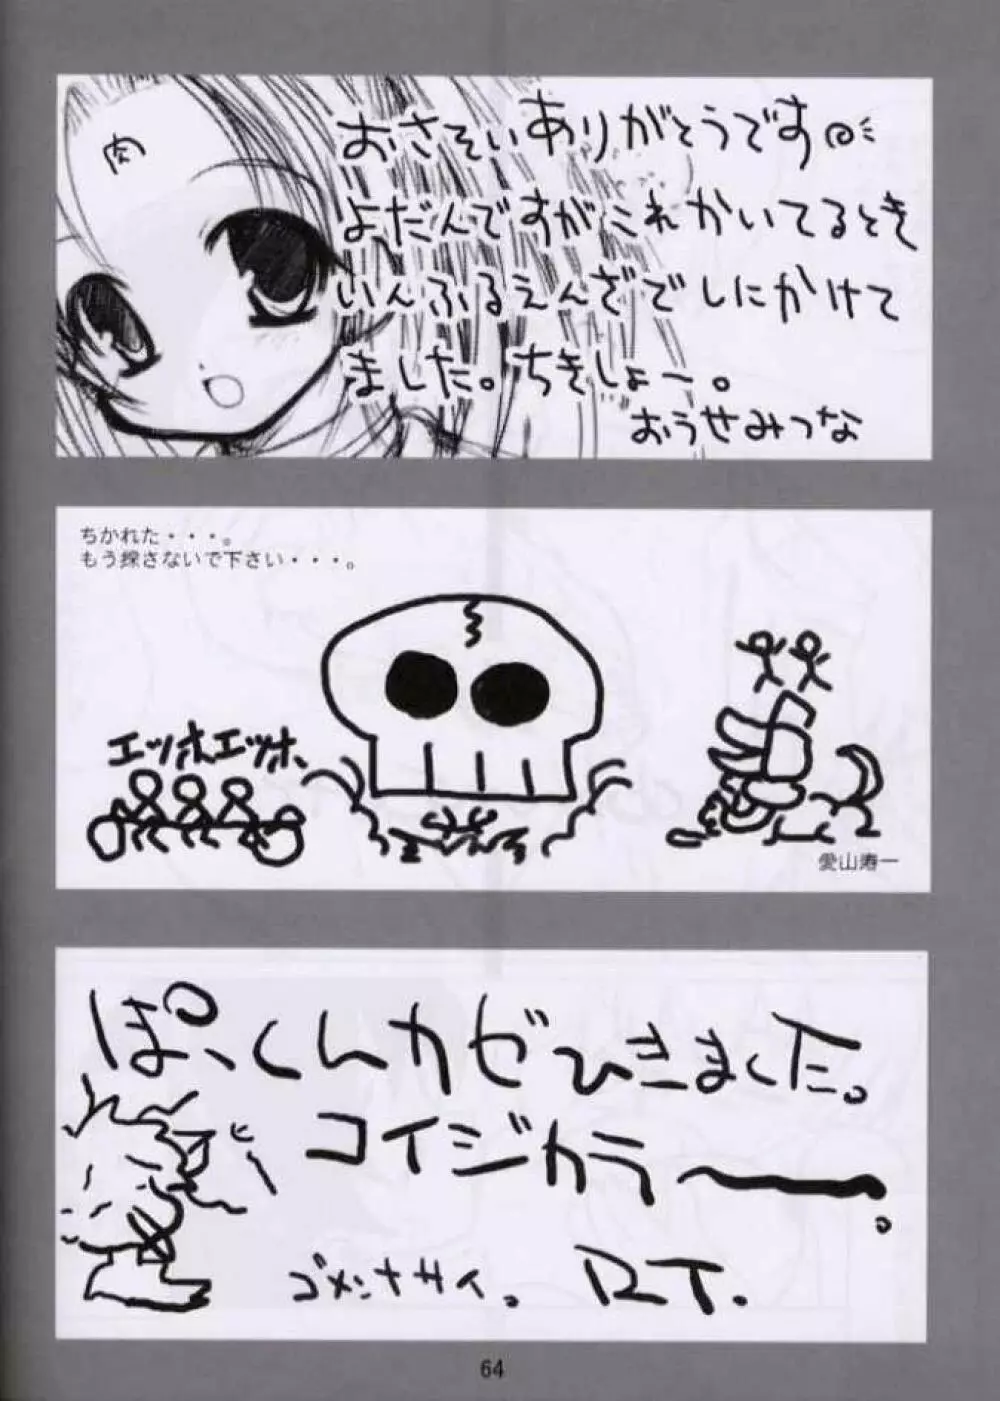 肉
おさそいありがとうです
よだんですがこれかいてるとき
いんふるえんざでしにかけて
ました。ちきしょー。
おうせみつな
ちかれた・・・。
もう探さないで下さい・・・。
エッホエッホ、
愛山寿一
ぽっくんカゼひきました。
コイジカラ〜。
ゴメンナサイ。 RT.
64